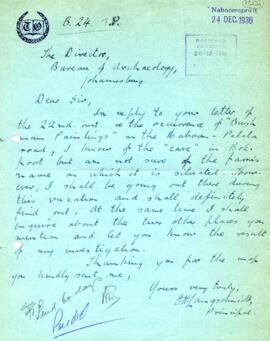 B. 24. T.P.
Naboomspruit
24 DEC. 1936
The Director,
Bureau of Archaeology,
Johannesburg.
Dear Sir,
In reply to your letter of
the 22nd. inst. re the occurrence of "Bush
man Paintings" in the Naboom-Palala
road, I know of the "cave" in Bok-
poort but am not sure of the farm's
name on which it is situated. How-
ever, I shall be going out there during
this vacation and shall definitely
find out. At the same time I shall
enquire about the two other places you
mention and let you know the result
of my investigation.
Thanking you for the map
you kindly sent me,
Yours very truly,
Langschmidt,
Principal.